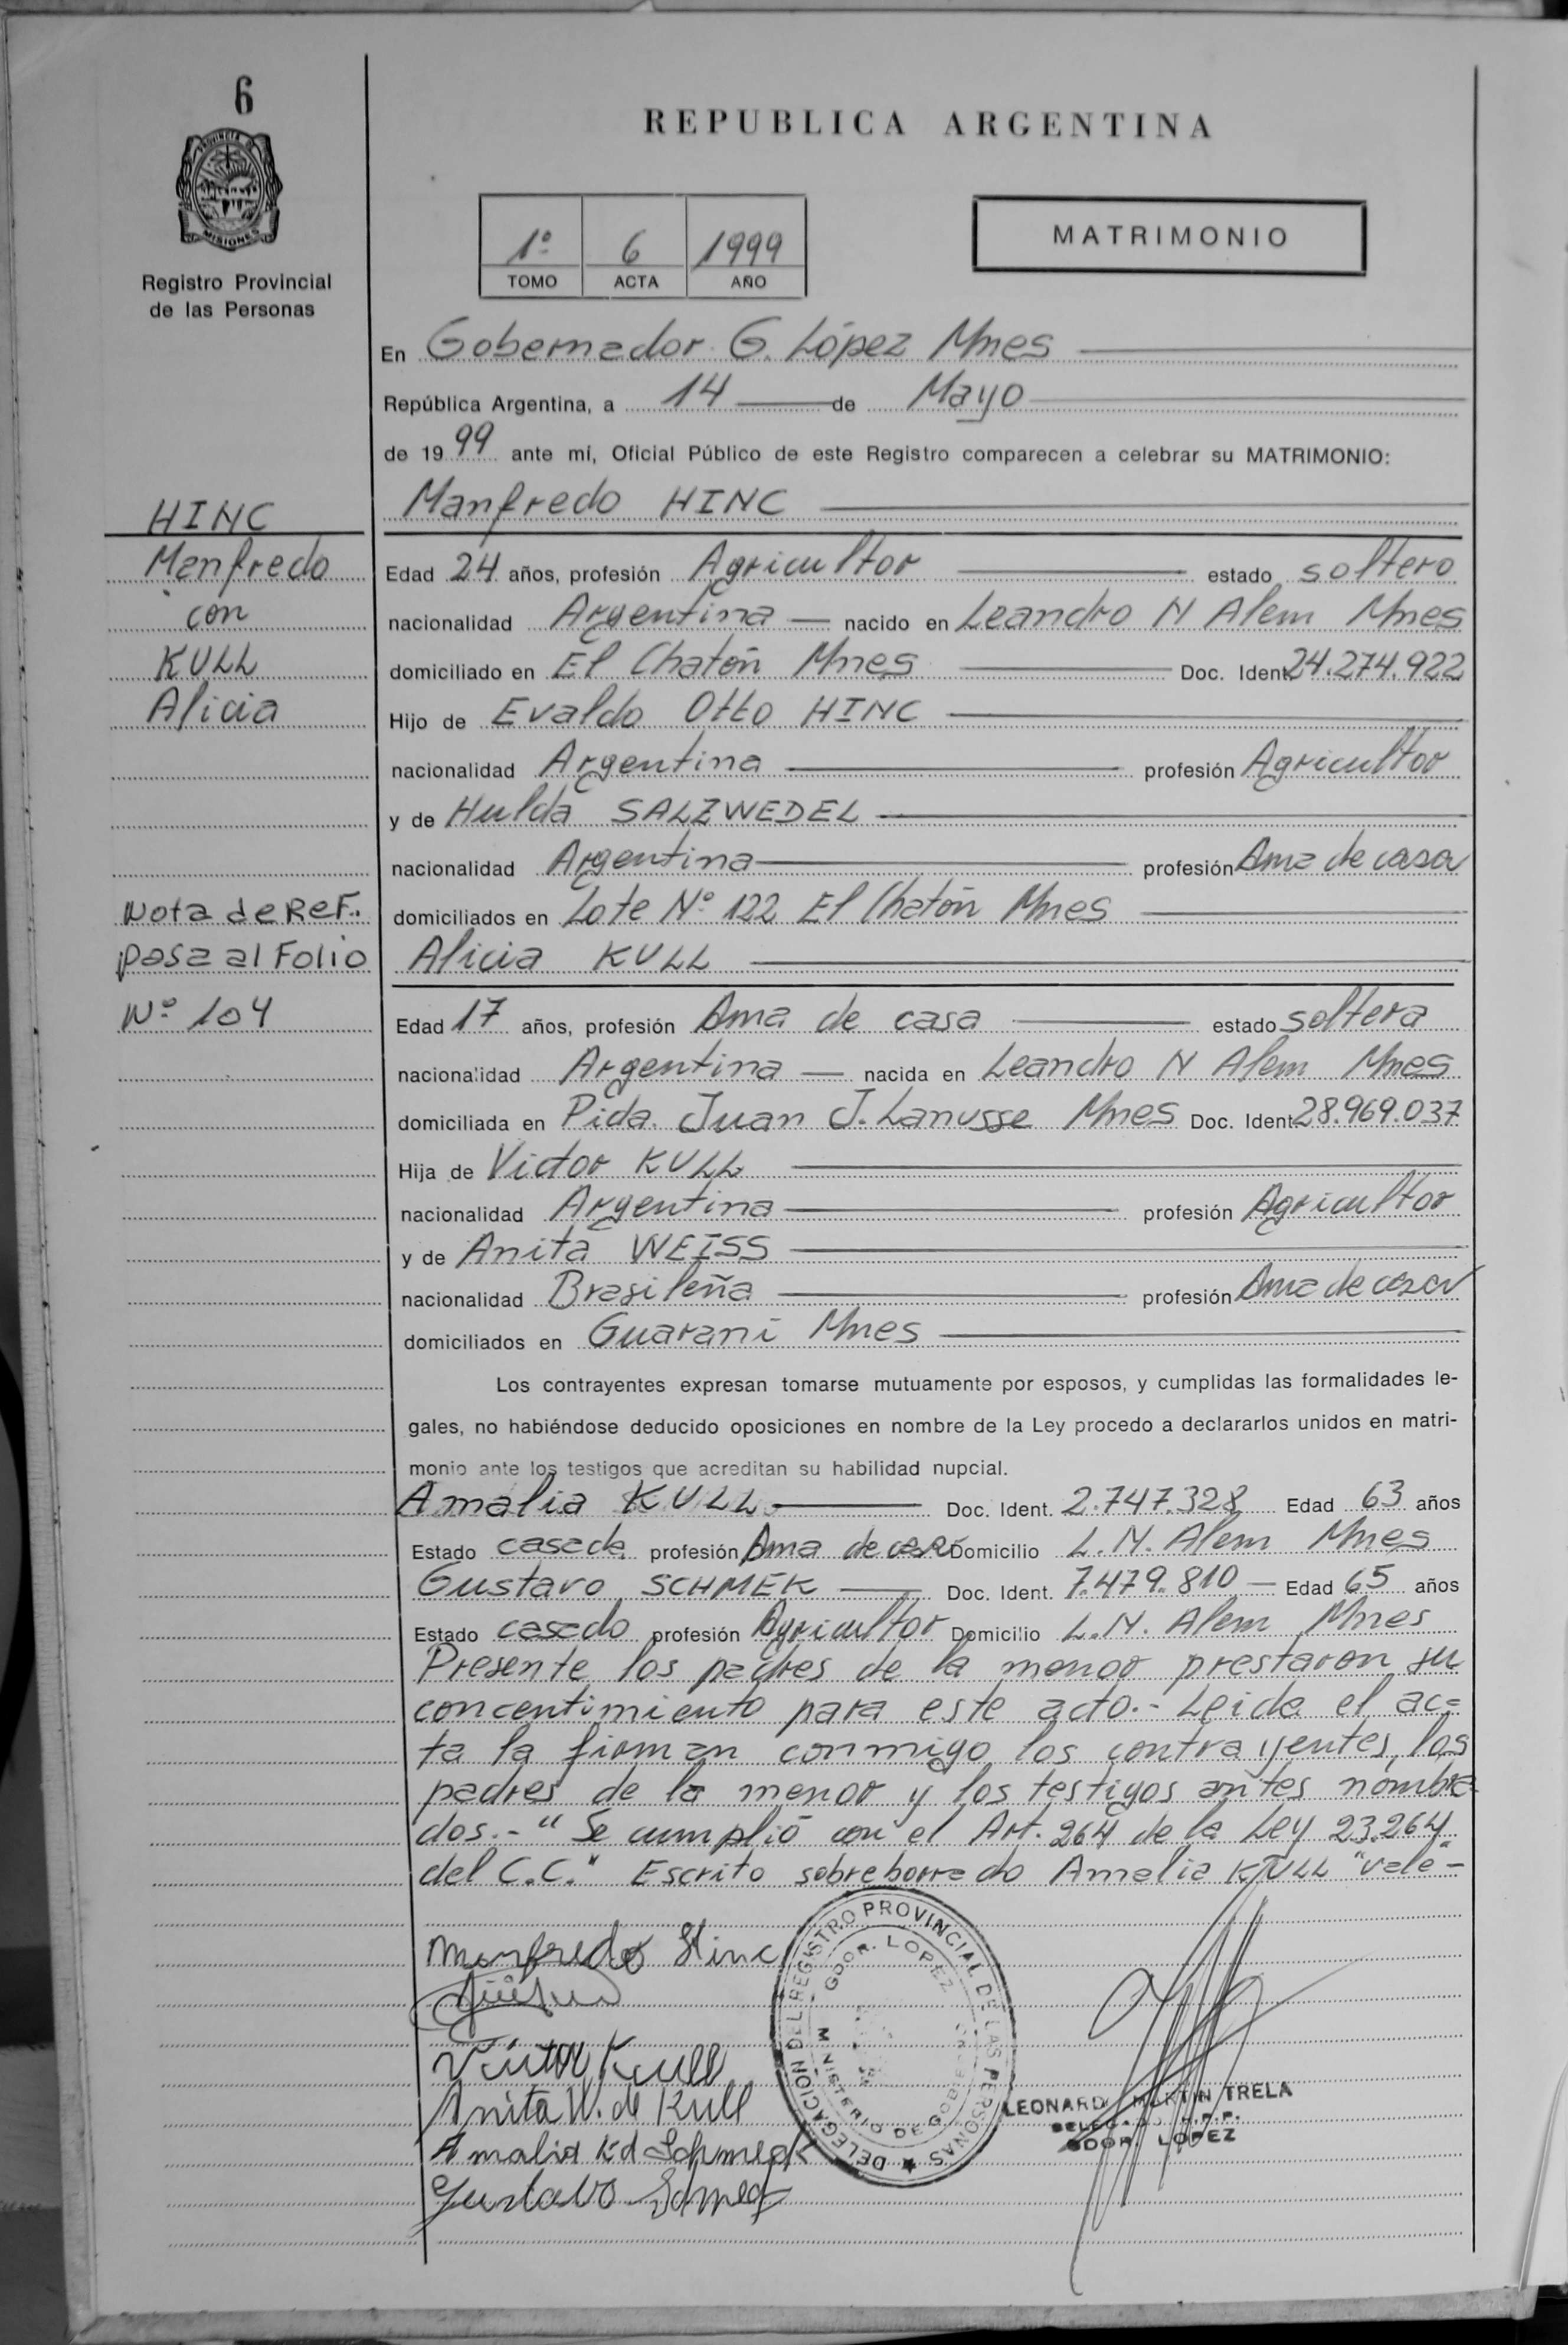 6
PROVINCIA DE
MISIONES
Registro Provincial
de las Personas
REPUBLICA ARGENTINA
1º 6 1999
TOMO ACTA AÑO
MATRIMONIO
En Gobernador G. López Mnes
República Argentina, a 14 de Mayo
de 1999 ante mí, Oficial Público de este Registro comparecen a celebrar su MATRIMONIO:
HINC
Manfredo
con
KULL
Alicia
Nota de Ref.
pasa al Folio
Nº 104
Manfredo HINC
Edad 24 años, profesión Agricultor estado soltero
nacionalidad Argentina nacido en Leandro N Alem Mnes
domiciliado en El Chatón Mnes Doc. Ident 24.274.922
Hijo de Evaldo Otto HINC
nacionalidad Argentina profesión Agricultor
y de Hulda SALZWEDEL
nacionalidad Argentina profesión Ama de casa
domiciliados en Lote Nº 122 El Chatón Mnes
Alicia KULL
Edad 17 años, profesión Ama de casa estado soltera
nacionalidad Argentina nacida en Leandro N Alem Mnes
domiciliada en Pida. Juan J. Lanusse Mnes Doc. Ident 28.969.037
Hija de Victor KULL
nacionalidad Argentina profesión Agricultor
y de Anita WEISS
nacionalidad Brasileña profesión Ama de casa
domiciliados en Guaraní Mnes
Los contrayentes expresan tomarse mutuamente por esposos, y cumplidas las formalidades le-
gales, no habiéndose deducido oposiciones en nombre de la Ley procedo a declararlos unidos en matri-
monio ante los testigos que acreditan su habilidad nupcial.
Amalia KULL Doc. Ident. 2.747.328 Edad 63 años
Estado casada profesión Ama de casa Domicilio L.N. Alem Mnes
Gustavo SCHMEK Doc. Ident. 7.479.810 Edad 65 años
Estado casado profesión Agricultor Domicilio L.N. Alem Mnes
Presente los padres de la menor prestaron su
concentimiento para este acto.- Leida el ac=
ta la firman conmigo los contrayentes, los
padres de la menor y los testigos antes nombra
dos.- "Se cumplió con el Art. 264 de la Ley 23.264
del C.C." Escrito sobreborrado Amalia KULL "vale-
Manfredo Hinc
Victor Kull
Anita W. de Kull
Amalia K d Schmeck
Gustavo Schmek
DELEGACION DEL REGISTRO PROVINCIAL DE LAS PERSONAS
GDOR. LOPEZ
MINISTERIO DE GOBIE
LEONARD MARTIN TRELA
GDOR. LOPEZ